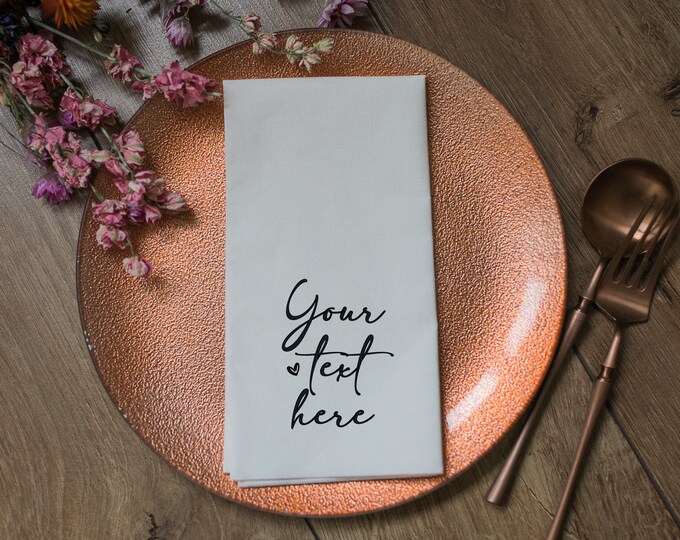 Your
text
here